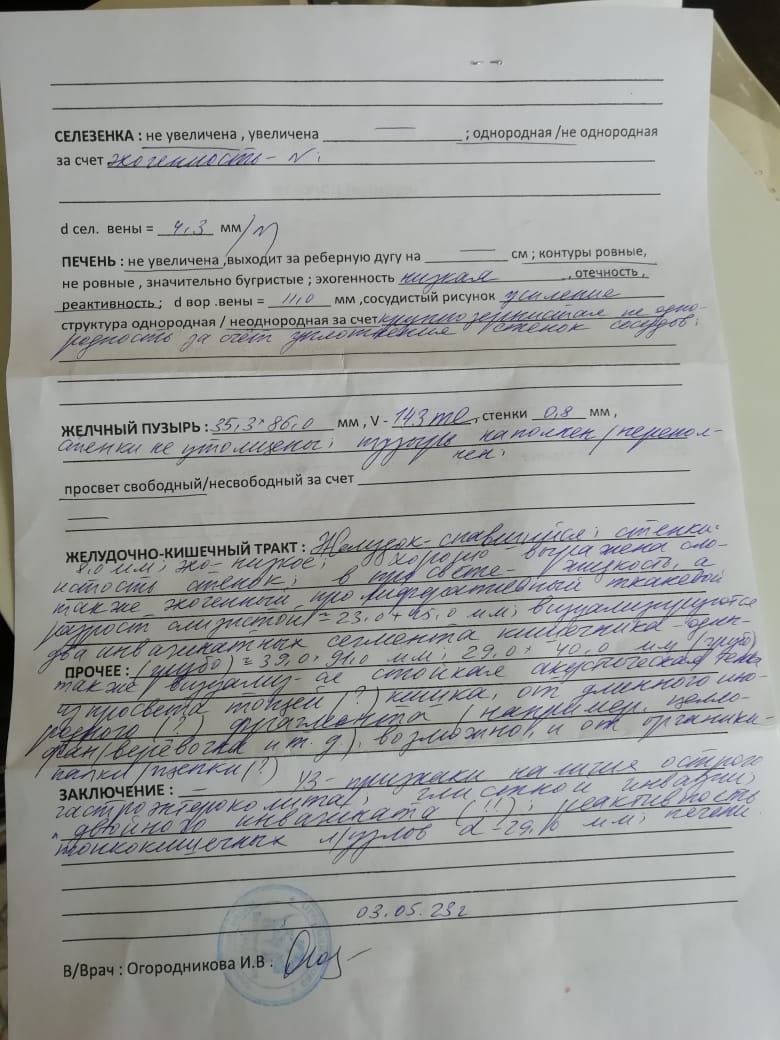 СЕЛЕЗЕНКА : не увеличена , увеличена ___ ; однородная /не однородная
за счет эхогенность - N;
d сел. вены = 4,3 мм/N
ПЕЧЕНЬ : не увеличена ,выходит за реберную дугу на ___ см ; контуры ровные,
не ровные , значительно бугристые ; эхогенность низкая , отечность ,
реактивность ; d вор .вены = 11,0 мм ,сосудистый рисунок усиление
структура однородная / неоднородная за счет крупнозернистая не одно-
родность за счёт уплотнения стенок сосудов;
ЖЕЛЧНЫЙ ПУЗЫРЬ : 35,3*86,0 мм , V - 143 ml , стенки 0,8 мм ,
стенки не утолщены; пузырь наполнен / перепол-
нен;
просвет свободный/несвободный за счет
ЖЕЛУДОЧНО-КИШЕЧНЫЙ ТРАКТ : Желудок - спавшийся; стенки-
8,0 мм; эхо - низкое; хорошо выражена сло-
истость стенок; в просвете - жидкость, а
также эхогенный пролиферативный тканевой
разрост слизистой ≈ 23,0 * 45,0 мм; визуализируются
два инвагинатных сегмента кишечника - один-
ПРОЧЕЕ : (грубо) ≈ 39,0 * 91,0 мм; 29,0 * 40,0 мм (грубо)
также визуализ-ся стойкая акустическая тень
из просвета тощей (?) кишки, от длинного ино-
родного (?) фрагмента (например, целло-
фан/верёвочка и т.д.), возможно, и от органики-
палки/щепки (?)
ЗАКЛЮЧЕНИЕ : УЗ - признаки наличия острого
гастроэнтероколита; глистной инвазии;
двойного инвагината (!!); реактивность
тонкокишечных л/узлов d - 29,0 мм; печени.
03.05.23г
В/Врач : Огородникова И.В .